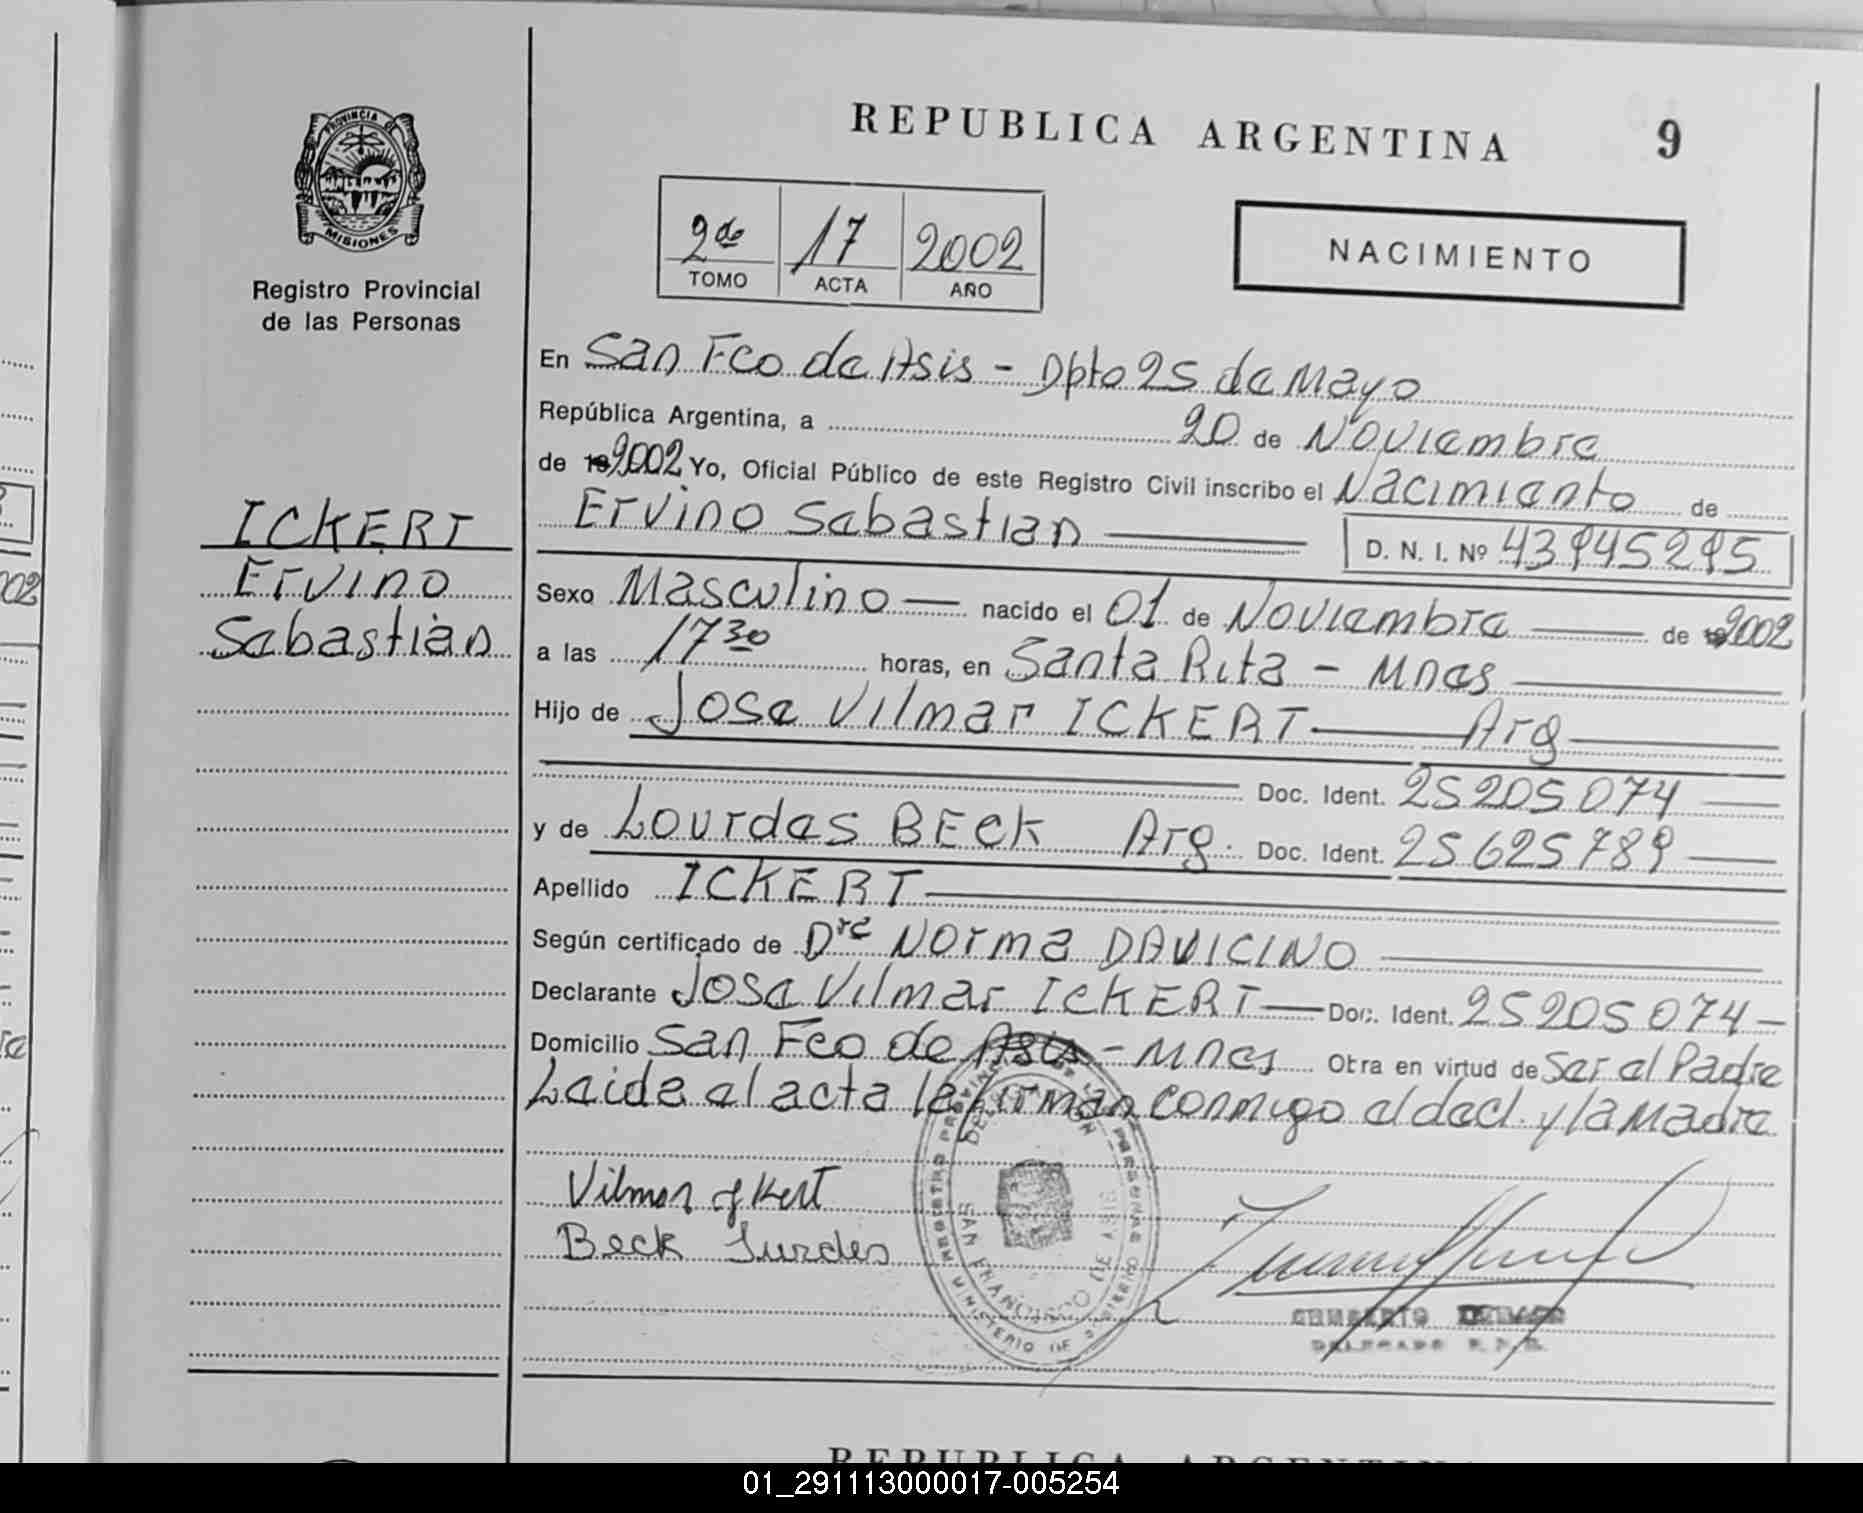 REPUBLICA ARGENTINA 9
PROVINCIA DE
MISIONES
Registro Provincial
de las Personas
2do 17 2002
TOMO ACTA AÑO
NACIMIENTO
ICKERT
Ervino
Sebastián
En San Fco de Asis - Dpto 25 de Mayo
República Argentina, a 20 de Noviembre
de 2002 Yo, Oficial Público de este Registro Civil inscribo el Nacimiento de
Ervino Sebastian D. N. I. Nº 43945295
Sexo Masculino nacido el 01 de Noviembre de 2002
a las 17 30 horas, en Santa Rita - Mnes
Hijo de Jose Vilmar ICKERT Arg
Doc. Ident. 25205074
y de Lourdes BECK Arg. Doc. Ident. 25625789
Apellido ICKERT
Según certificado de Dra NORMA DAVICINO
Declarante Jose Vilmar ICKERT Doc. Ident. 25205074-
Domicilio San Fco de Asis - Mnes Otra en virtud de Ser el Padre
Leida el acta la firman conmigo el decl. y la Madre
Vilmar Ickert
Beck Lurdes
SAN FRANCISCO DE ASIS
MINISTERIO DE
REPUBLICA ARGENTINA
01_291113000017-005254